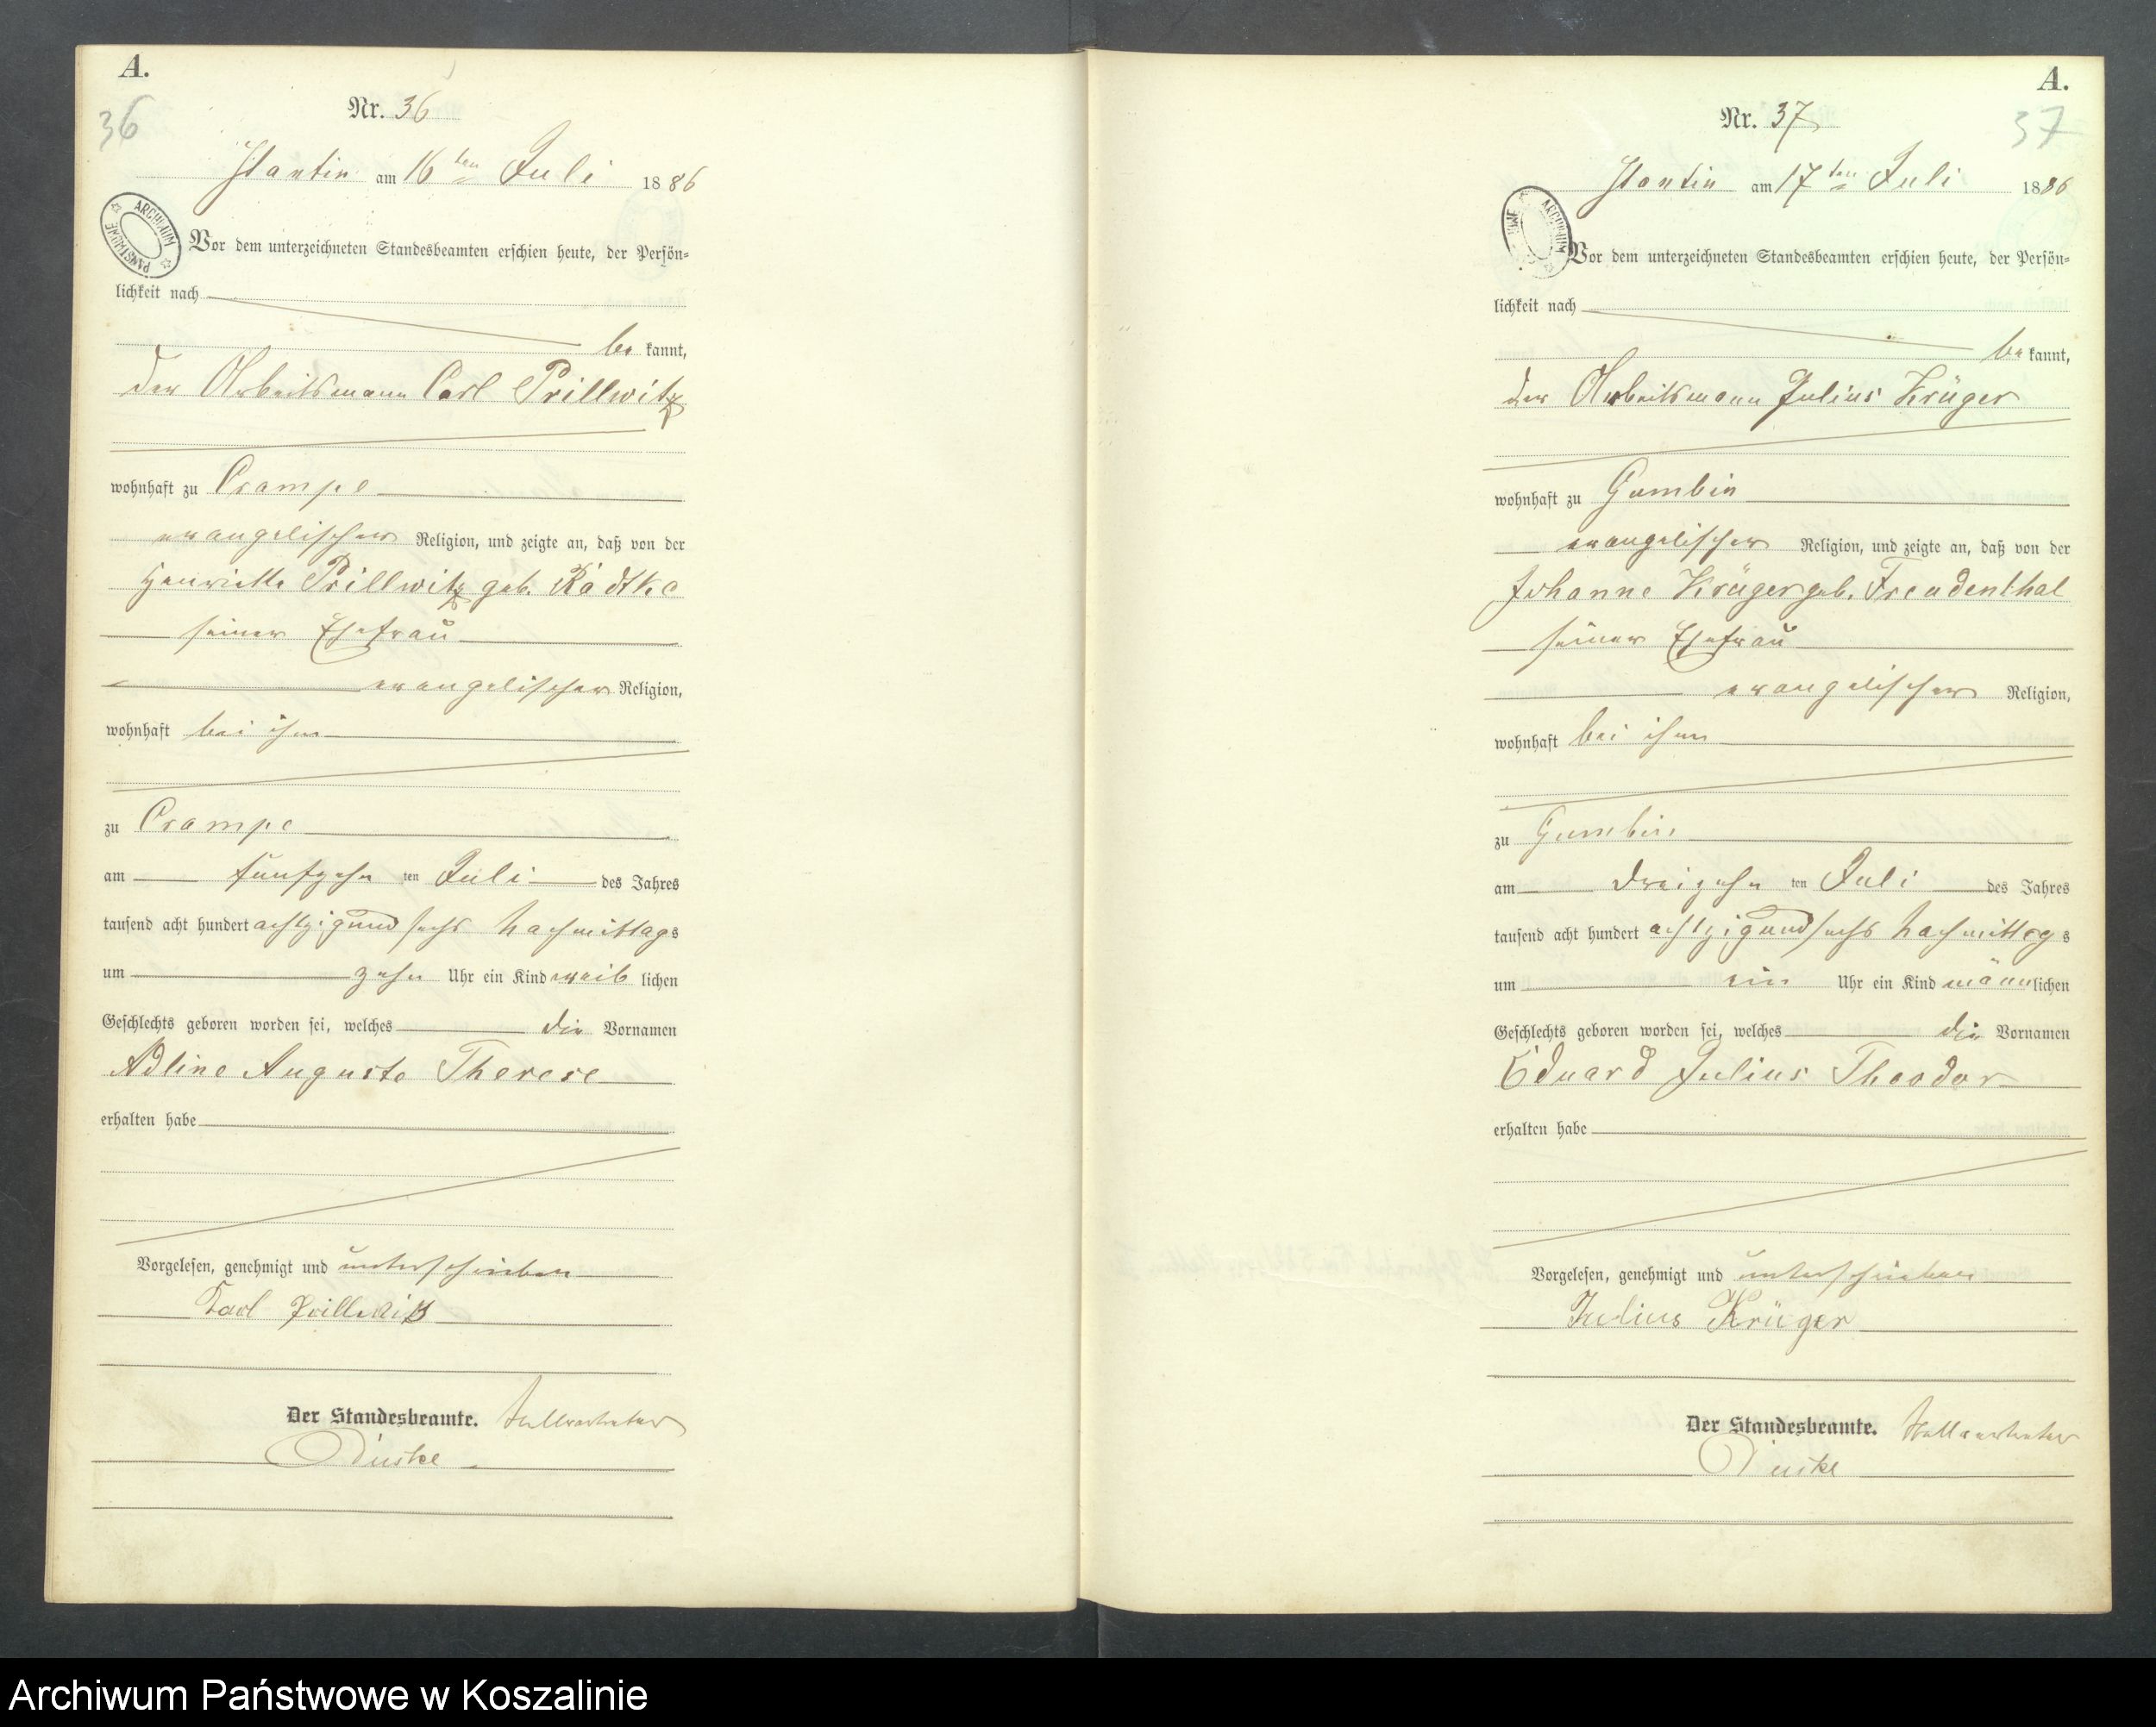 A.
36
Nr. 36
Stantin am 16ten Juli 1886
ARCHIWUM PAŃSTWOWE
Vor dem unterzeichneten Standesbeamten erschien heute, der Persön=
lichkeit nach
be kannt,
der Arbeitsmann Carl Prillwitz
wohnhaft zu Crampe
evangelischer Religion, und zeigte an, daß von der
Henriette Prillwitz geb. Radtke
seiner Ehefrau
evangelischer Religion,
wohnhaft bei ihm
zu Crampe
am fünfzehn ten Juli des Jahres
tausend acht hundert achtzigundsechs Nachmittags
um zehn Uhr ein Kind weib lichen
Geschlechts geboren worden sei, welches die Vornamen
Adline Auguste Therese
erhalten habe
Vorgelesen, genehmigt und unterschrieben
Karl Prillwitz
Der Standesbeamte. Stellvertreter
A.
37
Nr. 37
Stantin am 17ten Juli 1886
ARCHIWUM
Vor dem unterzeichneten Standesbeamten erschien heute, der Persön=
lichkeit nach
be kannt,
der Arbeitsmann Julius Krüger
wohnhaft zu Gumbin
evangelischer Religion, und zeigte an, daß von der
Johanne Krüger geb. Freudenthal
seiner Ehefrau
evangelischer Religion,
wohnhaft bei ihm
zu Gumbin
am dreizehn ten Juli des Jahres
tausend acht hundert achtzigundsechs Nachmittags
um ein Uhr ein Kind männ lichen
Geschlechts geboren worden sei, welches die Vornamen
Eduard Julius Theodor
erhalten habe
Vorgelesen, genehmigt und unterschrieben
Julius Krüger
Der Standesbeamte. Stellvertreter
Archiwum Państwowe w Koszalinie